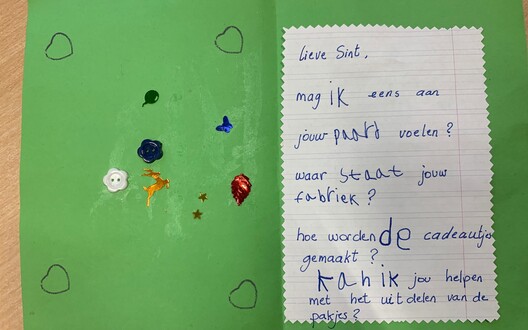 lieve Sint,
mag ik eens aan
jouw paard voelen?
waar staat jouw
fabriek?
hoe worden de cadeautjes
gemaakt?
kan ik jou helpen
met het uitdelen van de
pakjes?